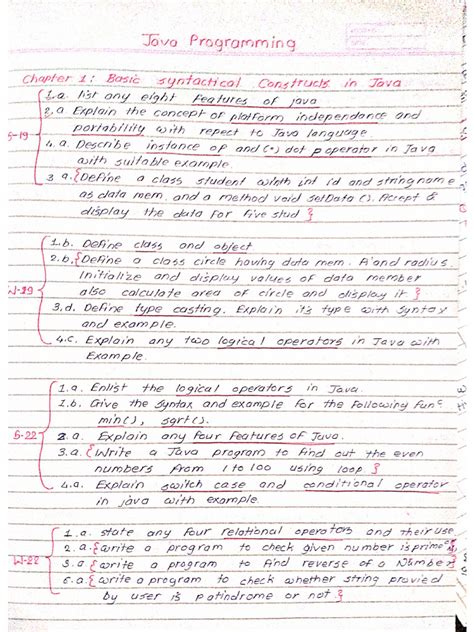 Java Programming
Chapter 1: Basic syntactical Constructs in Java
1.a. list any eight features of java
2.a Explain the concept of platform independence and
portability with repect to Java language
S-19
4.a. Describe instance of and (.) dot operator in Java
with suitable example.
3 a. {Define a class student with int id and string name
as data mem. and a method void setData (). Accept &
display the data for five stud }
1.b. Define class and object
2.b. {Define a class circle having data mem. A and radius.
Initialize and display values of data member
W-19
also calculate area of circle and display it }
3.d. Define type casting. Explain its type with syntax
and example.
4.c. Explain any two logical operators in Java with
Example.
1.a. Enlist the logical operators in Java.
1.b. Give the syntax and example for the following func
min(), sqrt().
S-22
2.a. Explain any four features of Java.
3.a. {Write a Java program to find out the even
numbers from 1 to 100 using loop }
4.a. Explain switch case and conditional operator
in java with example.
1.a. state any four relational operators and their use
2.a. {write a program to check given number is prime
W-22
3.a {write a program to find reverse of a Number}
6.a {write a program to check whether string provied
by user is palindrome or not }